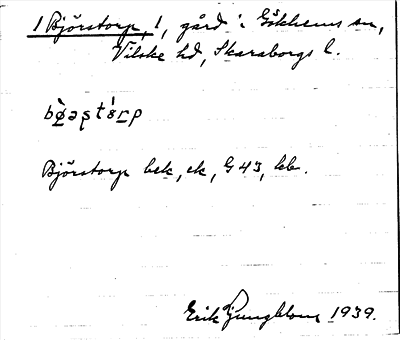 1 Björstorp, 1, gård i Gökhems sn,
Vilske hd, Skaraborgs l.
Björstorp bek, ek, G 43, kb.
Erik Ljungblom 1939.